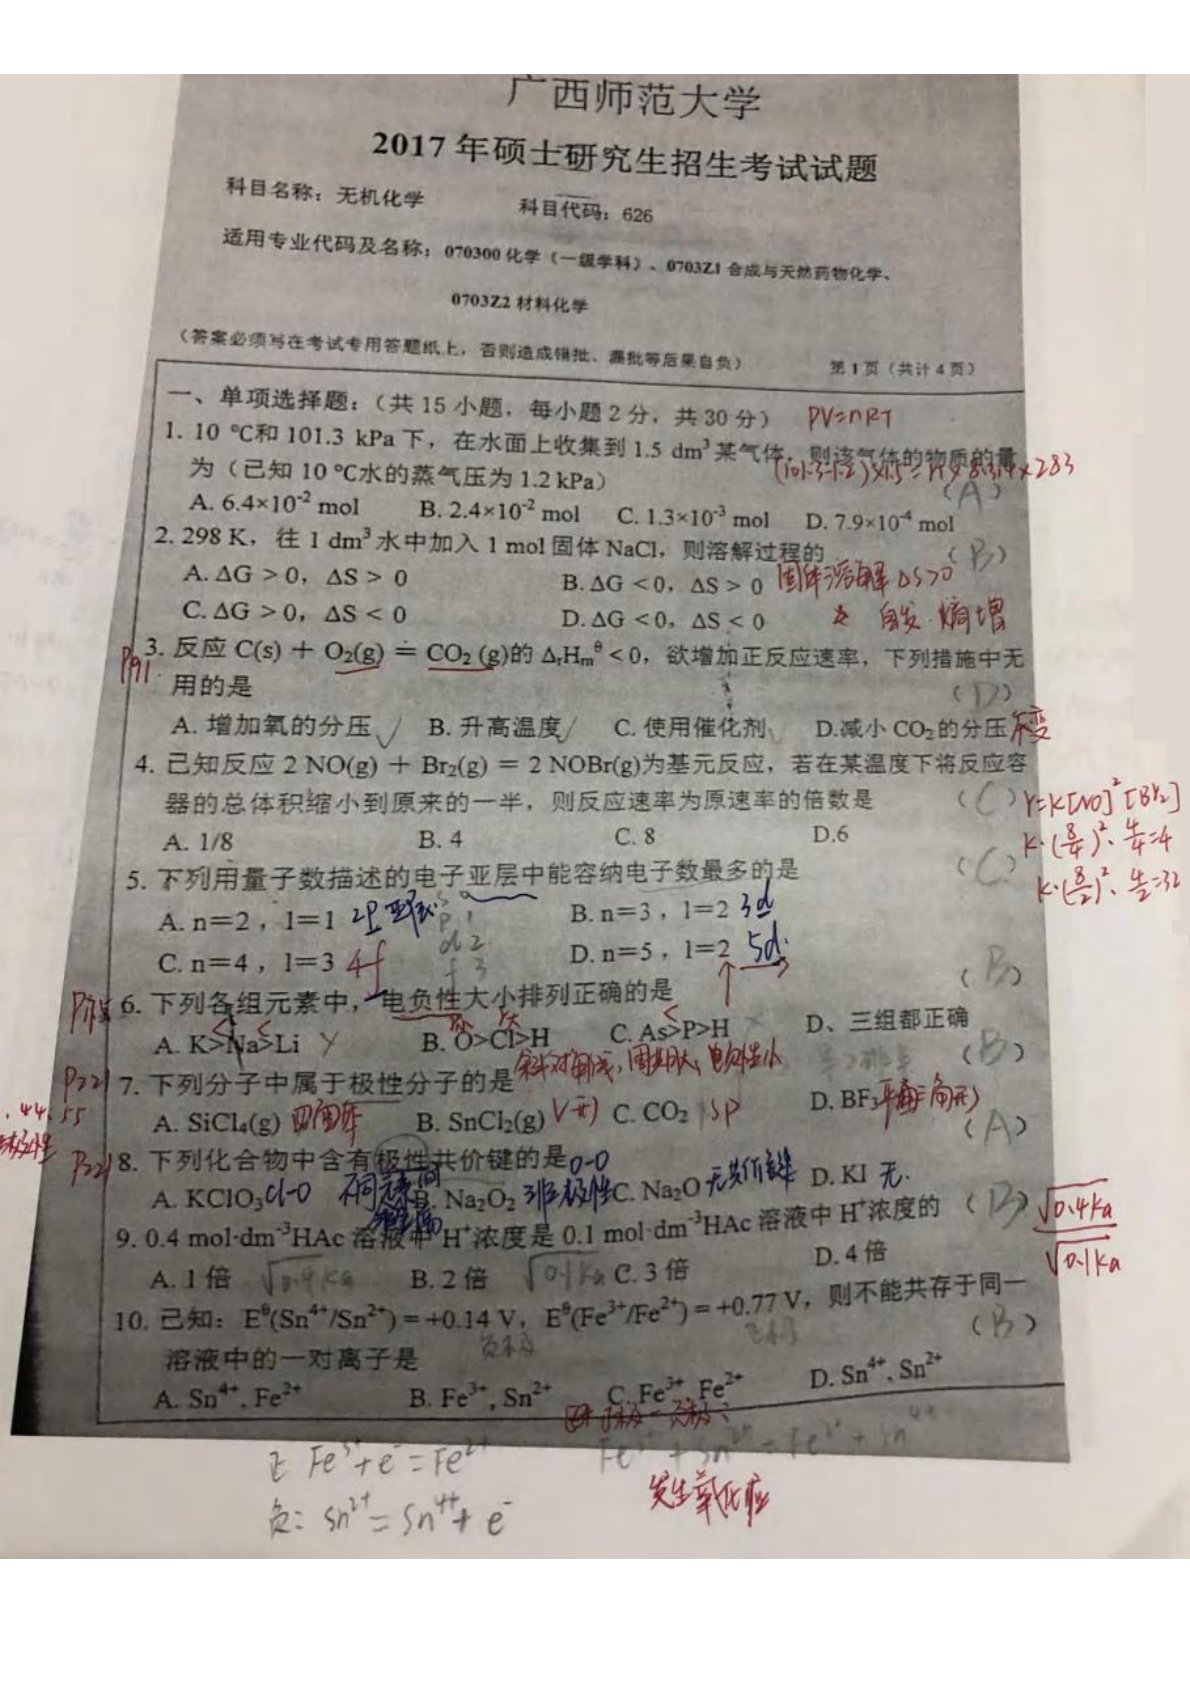 广西师范大学
2017 年硕士研究生招生考试试题
科目名称：无机化学 科目代码：626
适用专业代码及名称：070300 化学（一级学科）、0703Z1 合成与天然药物化学、
0703Z2 材料化学
（答案必须写在考试专用答题纸上，否则造成错批、漏批等后果自负） 第 1 页（共计 4 页）
一、单项选择题：（共 15 小题，每小题 2 分，共 30 分） PV=nRT
1. 10 ℃和 101.3 kPa 下，在水面上收集到 1.5 dm³ 某气体，则该气体的物质的量
为（已知 10 ℃水的蒸气压为 1.2 kPa） (101.3-1.2)×1.5=n×8.314×283
(A)
A. 6.4×10⁻² mol B. 2.4×10⁻² mol C. 1.3×10⁻³ mol D. 7.9×10⁻⁴ mol
2. 298 K，往 1 dm³ 水中加入 1 mol 固体 NaCl，则溶解过程的 (B)
A. ΔG > 0，ΔS > 0 B. ΔG < 0，ΔS > 0 固体溶解 ΔS>0
C. ΔG > 0，ΔS < 0 D. ΔG < 0，ΔS < 0 自发.熵增
P91. 3. 反应 C(s) + O₂(g) = CO₂ (g)的 ΔᵣHₘ^θ < 0，欲增加正反应速率，下列措施中无
用的是 (D)
A. 增加氧的分压 √ B. 升高温度 √ C. 使用催化剂 √ D.减小 CO₂ 的分压 不变
4. 己知反应 2 NO(g) + Br₂(g) = 2 NOBr(g)为基元反应，若在某温度下将反应容
器的总体积缩小到原来的一半，则反应速率为原速率的倍数是 (C) r=K[NO]²[Br₂]
A. 1/8 B. 4 C. 8 D.6 K·(8/4)²·4/4=4
5. 下列用量子数描述的电子亚层中能容纳电子数最多的是 (C) K·(8/2)²·4/2=32
A. n=2，l=1 2P B. n=3，l=2 3d
C. n=4，l=3 4f D. n=5，l=2 5d
s 0
p 1
d 2
f 3
6. 下列各组元素中，电负性大小排列正确的是 (B)
A. K>Na>Li B. O>Cl>H C. As>P>H D、三组都正确
P221 7. 下列分子中属于极性分子的是 (B)
A. SiCl₄(g) B. SnCl₂(g) V形 C. CO₂ sp D. BF₃ 平面三角形
P221 8. 下列化合物中含有极性共价键的是 (A)
A. KClO₃ Cl-O 不同元素间 B. Na₂O₂ O-O 非极性 C. Na₂O 无共价键 D. KI 无.
9. 0.4 mol·dm⁻³HAc 溶液中 H⁺浓度是 0.1 mol·dm⁻³HAc 溶液中 H⁺浓度的 (B) √0.4Ka
A. 1 倍 √0.4Ka B. 2 倍 √0.1Ka C. 3 倍 D. 4 倍 √0.1Ka
10. 己知：E^θ(Sn⁴⁺/Sn²⁺) = +0.14 V，E^θ(Fe³⁺/Fe²⁺) = +0.77 V，则不能共存于同一
溶液中的一对离子是 (B)
A. Sn⁴⁺, Fe²⁺ B. Fe³⁺, Sn²⁺ C. Fe³⁺, Fe²⁺ D. Sn⁴⁺, Sn²⁺
正 Fe³⁺+e⁻=Fe²⁺ Fe³⁺+Sn²⁺=Fe²⁺+Sn⁴⁺
负: Sn²⁺=Sn⁴⁺+e⁻